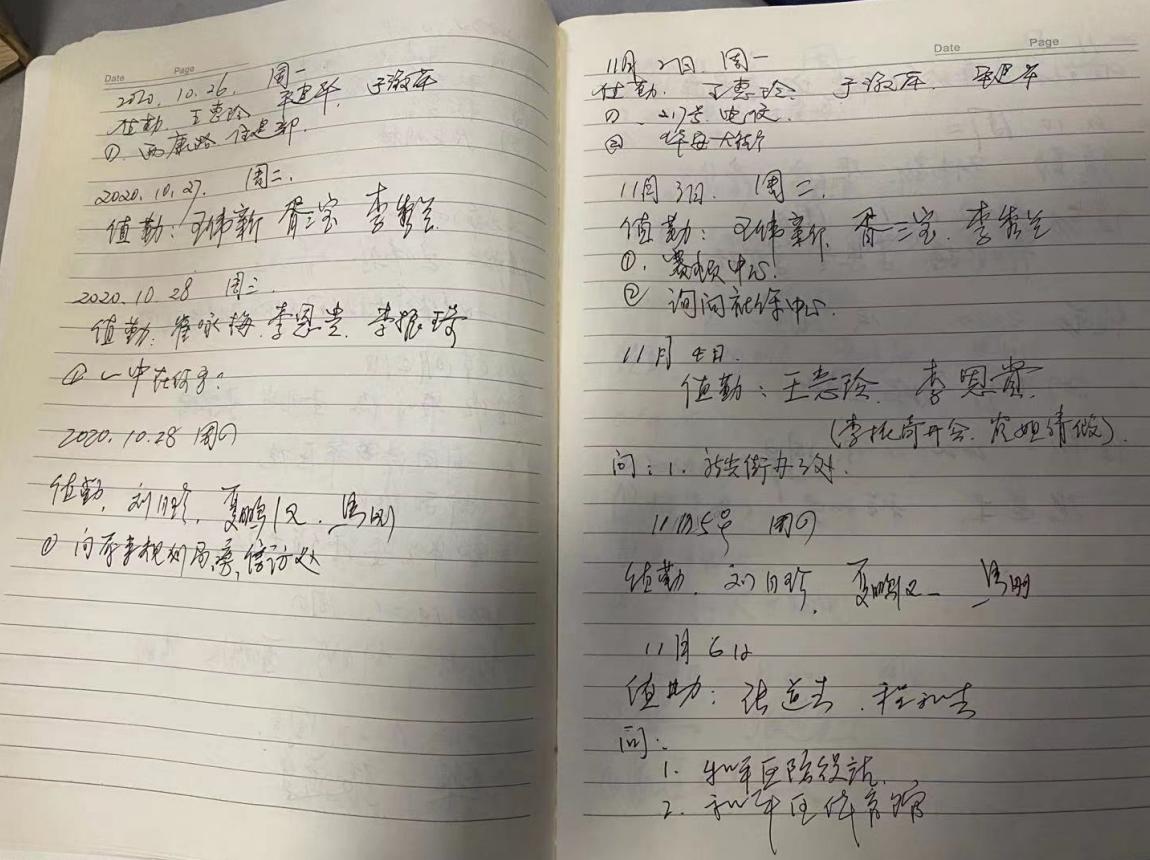 Date Page
2020.10.26. 周一
值勤 王惠玲 于淑萍
① 西康路 住建部.
2020.10.27. 周二.
值勤: 王伟新 胥三宝 李秀兰
2020.10.28 周三.
值勤: 崔咏梅. 李恩贵. 李振琦
① 一中在何方?
2020.10.28 周四
值勤. 刘月珍. 夏鹏仪. 马刚
① 问 规划局, 信访处
Date Page
11月2日. 周一
值勤. 王惠玲. 于淑萍
① . 217号
② 大街
11月3日. 周二.
值勤: 王伟新. 胥三宝. 李秀兰
①. 中心.
② 询问社保中心.
11月4日.
值勤: 王惠玲. 李恩贵.
(李振琦开会. 崔姐请假).
问: 1. 街办
11月5号 周四
值勤. 刘月珍. 夏鹏仪 马刚
11月6日
值勤: 张道吉. 程
问:
1. 和平区防疫站.
2. 和平区体育馆